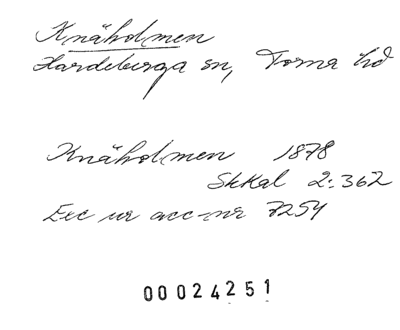 Knäholmen
Hardeberga sn, Torna hd
Knäholmen 1878
SkKal 2:362
Exc ur acc-nr 7254
00024251